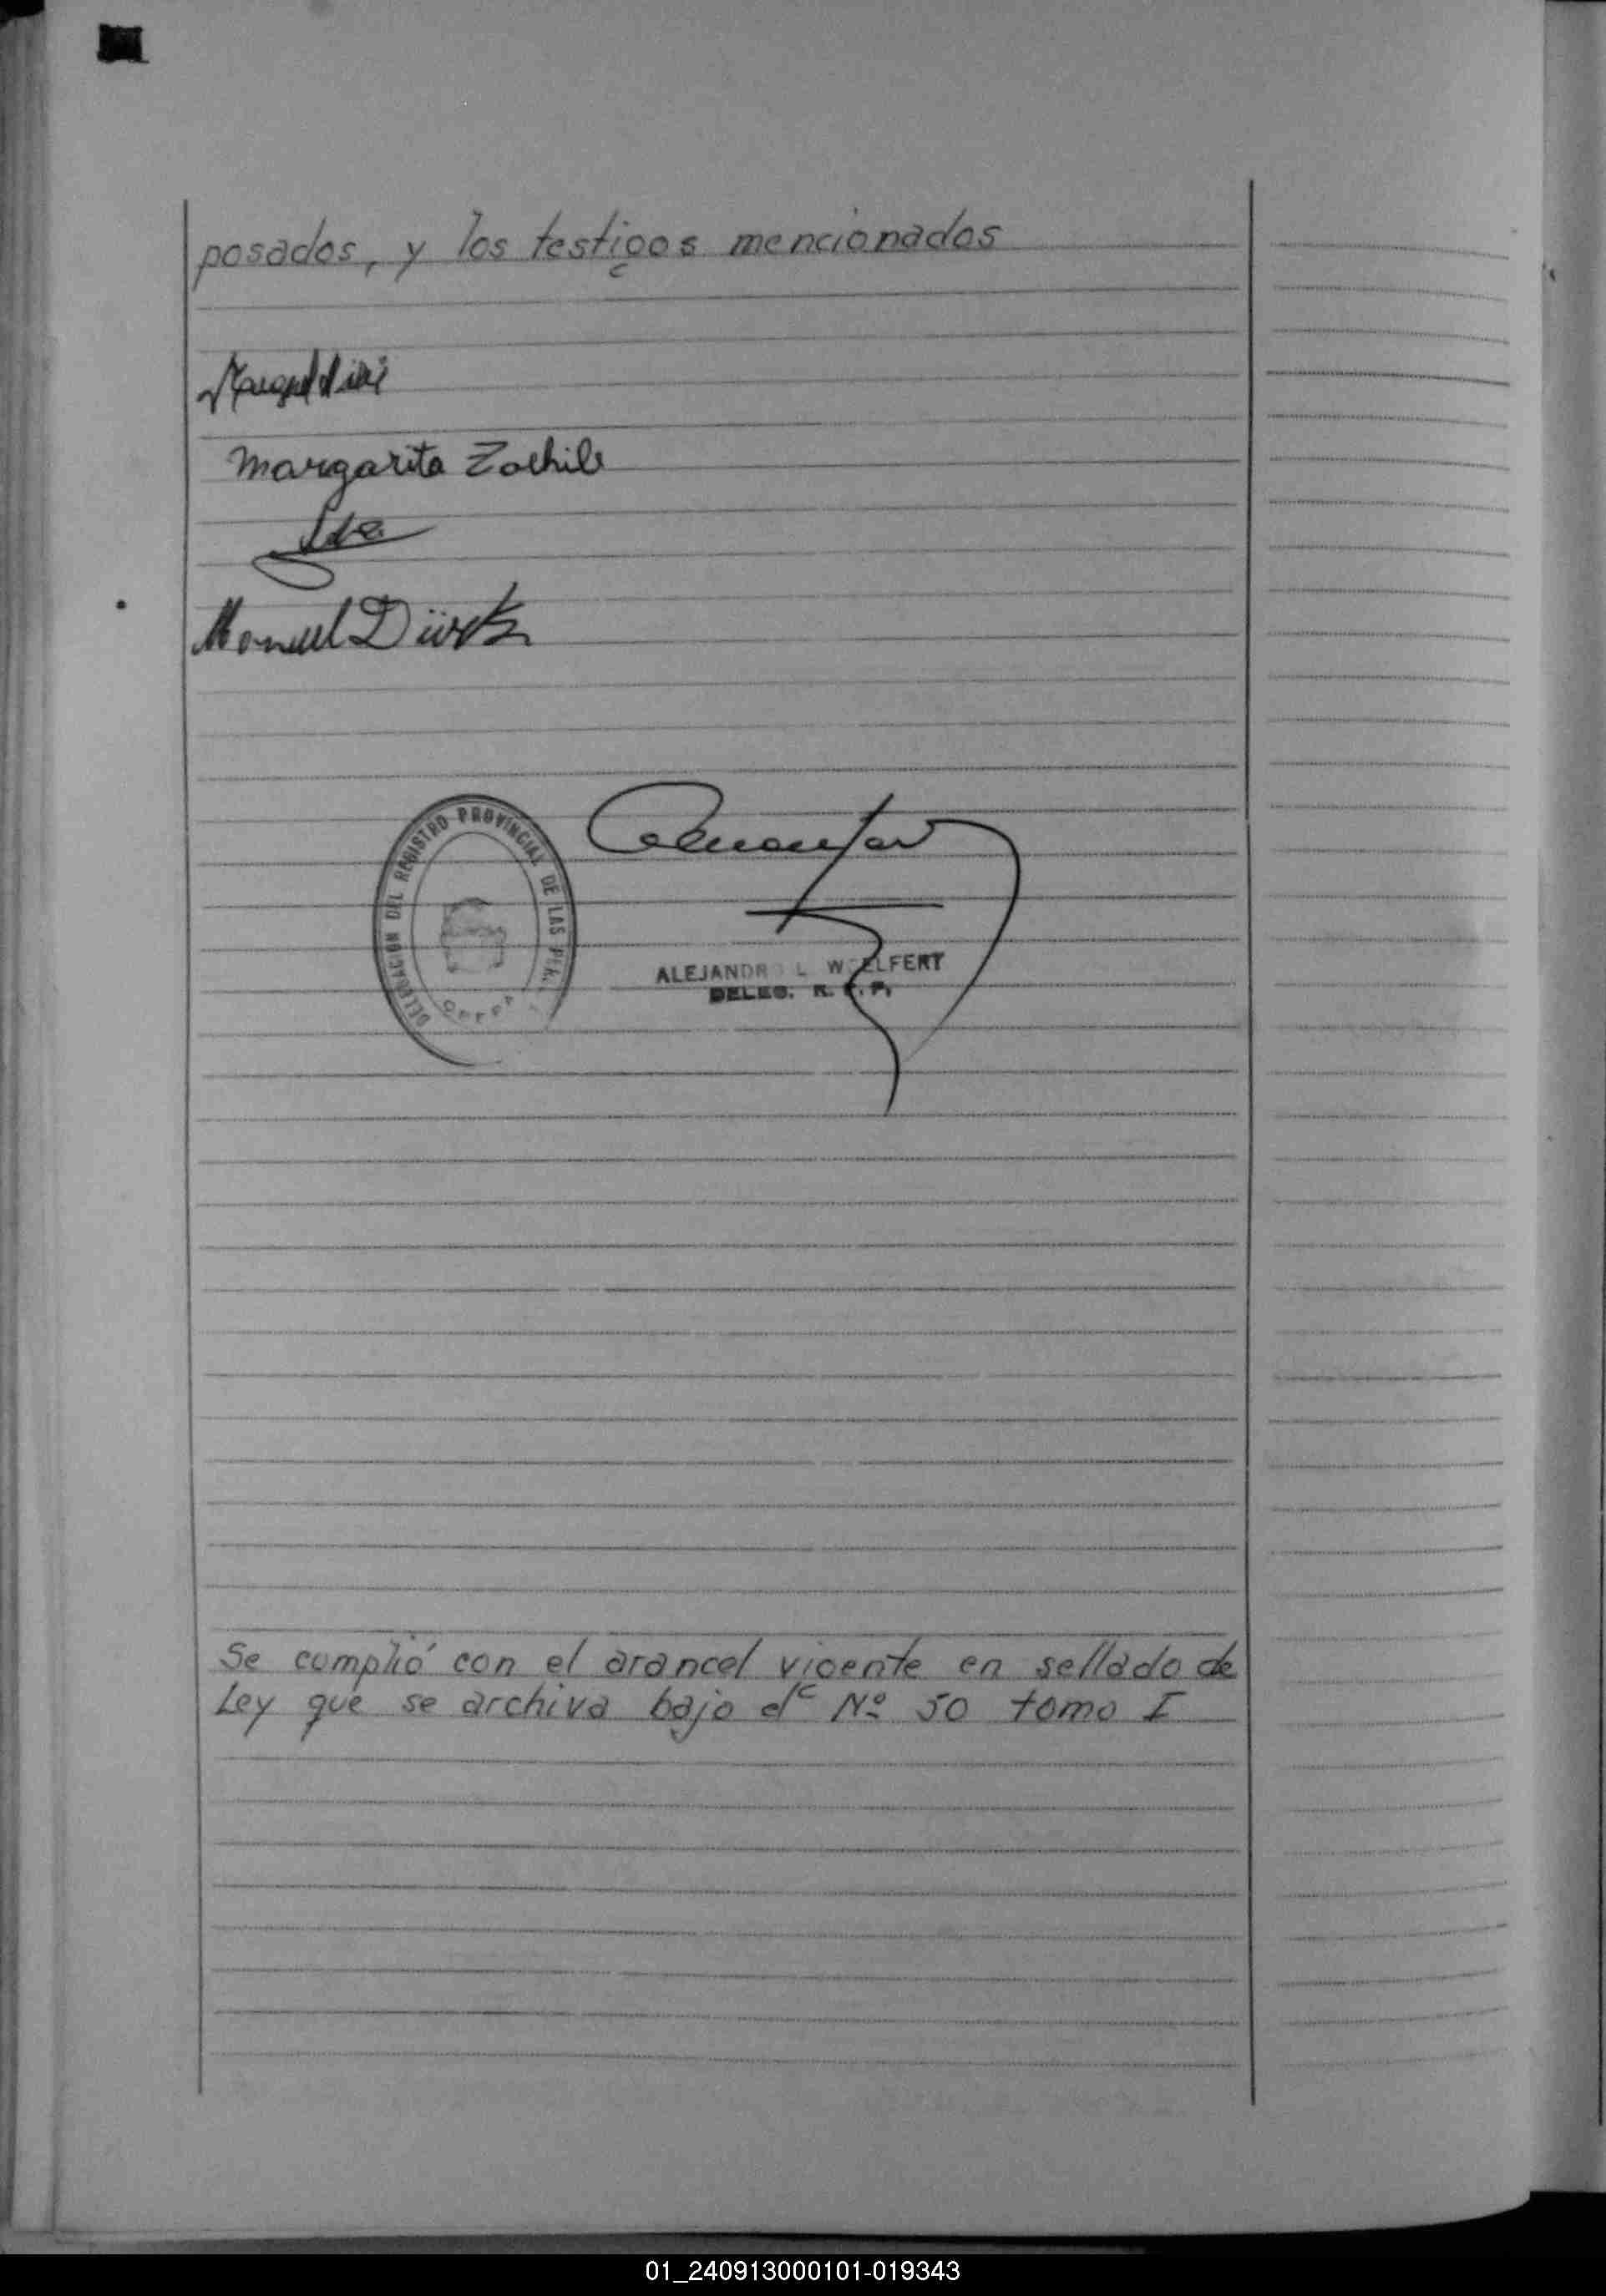 posados, y los testigos mencionados
Margarita Zochile
Manuel Dürks
DELEGACION DEL REGISTRO PROVINCIAL DE LAS PER.
ALEJANDR L W ELFERT
DELEG. R. P.
Se cumplió con el arancel vigente en sellado de
Ley que se archiva bajo el Nº 50 tomo I
01_240913000101-019343